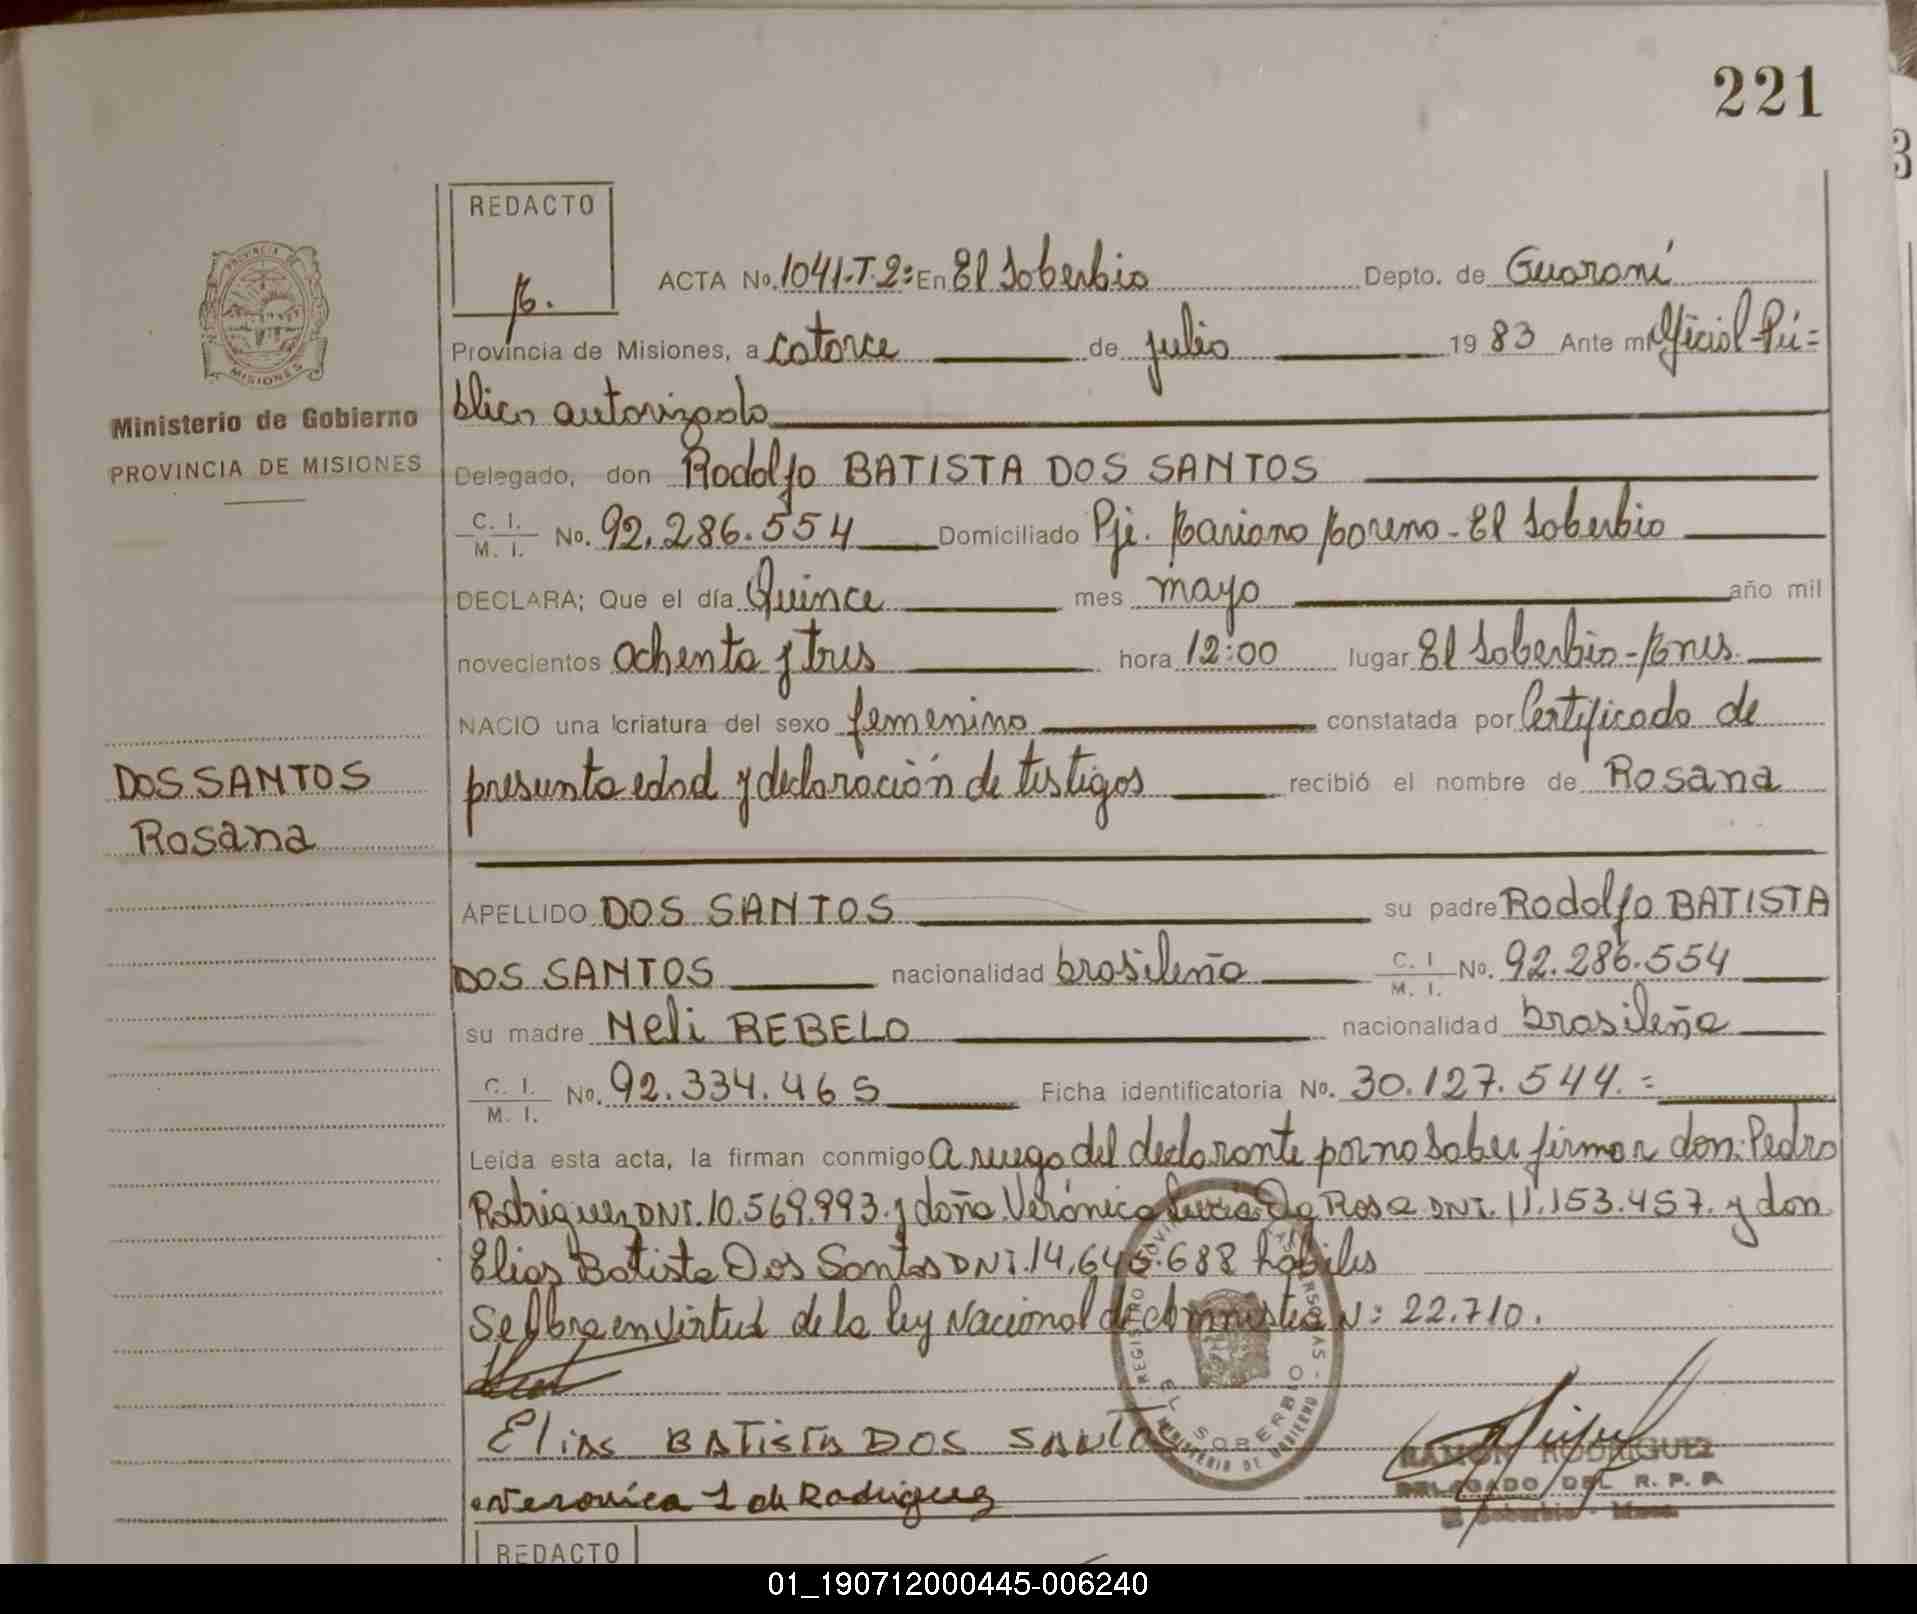 221
REDACTO
ACTA No. 1041-T.2= En El Soberbio Depto. de Guaraní
Provincia de Misiones, a catorce de julio 1983 Ante mi Oficial Pú=
blico autorizado
PROVINCIA DE MISIONES
Ministerio de Gobierno
PROVINCIA DE MISIONES
Delegado, don Rodolfo BATISTA DOS SANTOS
C. I.
M. I. No. 92.286.554 Domiciliado Pje. Mariano Moreno - El Soberbio
DECLARA; Que el día Quince mes mayo año mil
novecientos ochenta y tres hora 12:00 lugar El Soberbio - Mnes.
NACIO una criatura del sexo femenino constatada por Certificado de
presunta edad y declaración de testigos recibió el nombre de Rosana
DOS SANTOS
Rosana
APELLIDO DOS SANTOS su padre Rodolfo BATISTA
DOS SANTOS nacionalidad brasileña C. I.
M. I. No. 92.286.554
su madre Neli REBELO nacionalidad brasileña
C. I.
M. I. No. 92.334.465 Ficha identificatoria No. 30.127.544.=
Leída esta acta, la firman conmigo A ruego del declarante por no saber firmar don: Pedro
Rodriguez DNI. 10.569.993. y doña Verónica Lucia Da Rosa DNI. 11.153.457. y don
Elias Batista Dos Santos DNI. 14.645.688 hábiles
Se labra en virtud de la ley Nacional de Amnistia N: 22.710.
Elias BATISTA DOS SANTOS
Veronica L de Rodriguez
REGISTRO PROVINCIAL DE LAS PERSONAS - MINISTERIO DE GOBIERNO
EL SOBERBIO
RAMON RODRIGUEZ
DELEGADO DEL R. P. P.
El Soberbio - Mnes.
REDACTO
01_190712000445-006240